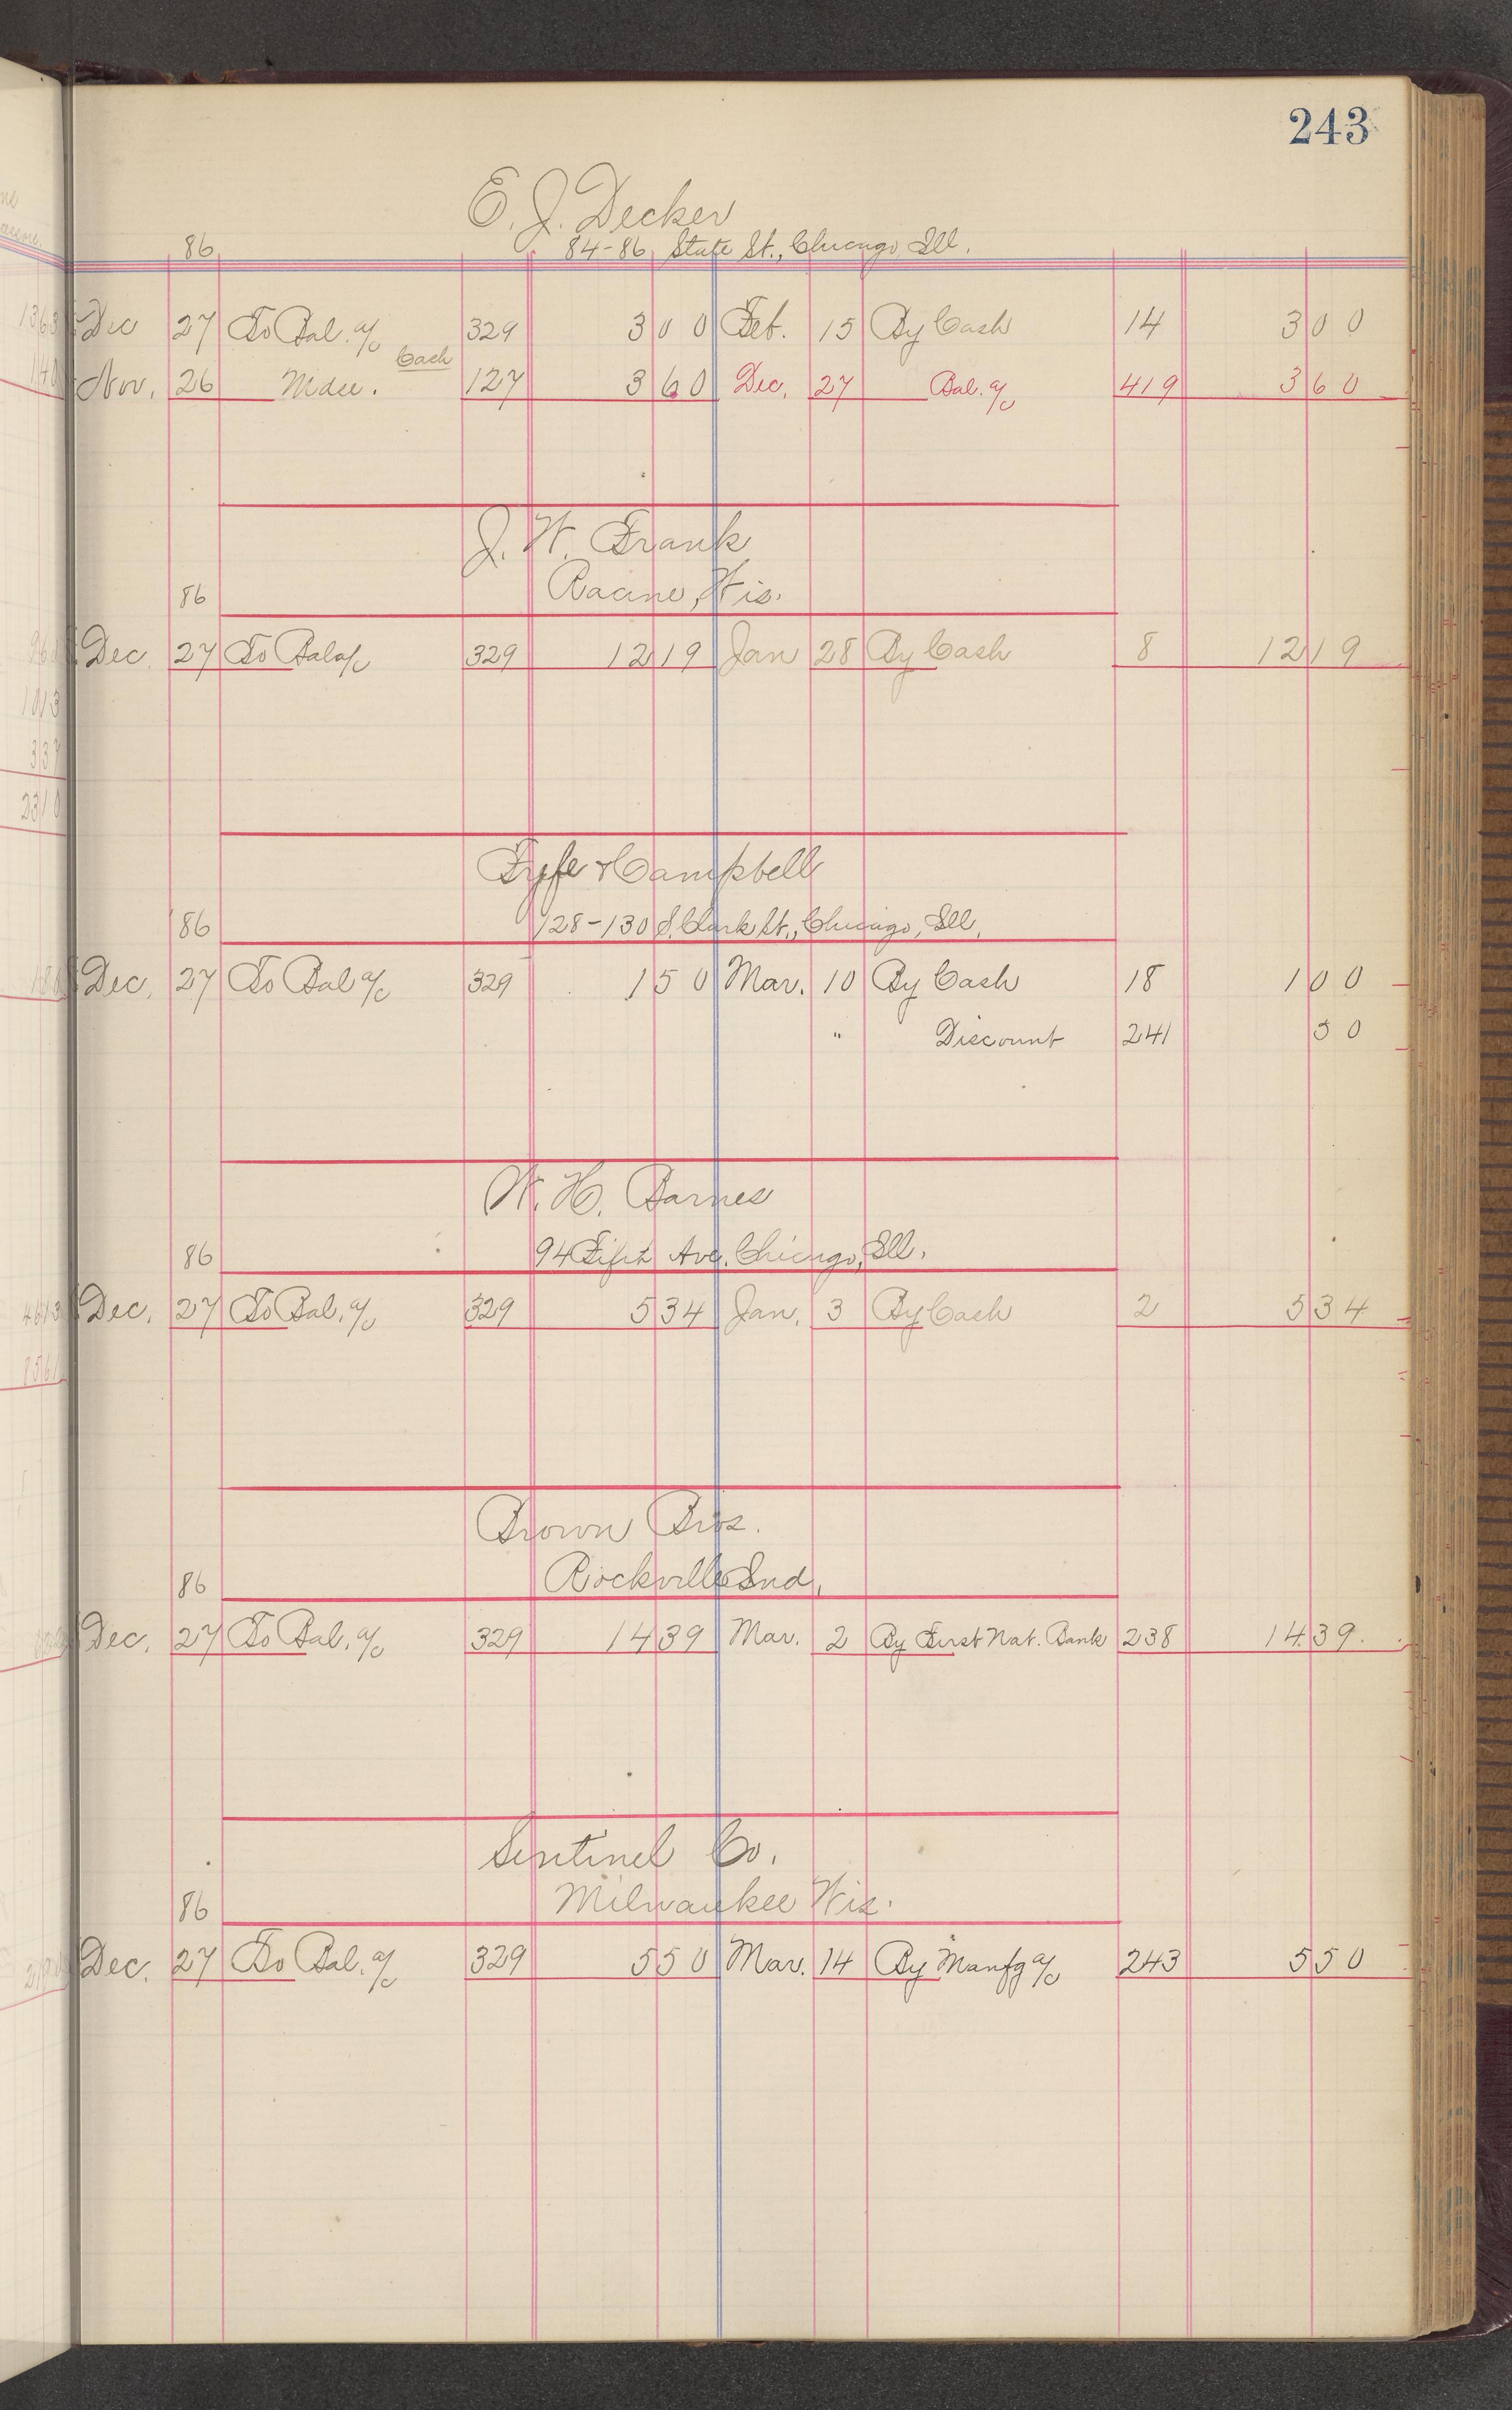 243
E. J. Decker
86 84-86 State St., Chicago, Ill.
Dec 27 To Bal. a/c 329 3 00 Feb. 15 By Cash 14 3 00
Cash
Nov. 26 Mdse. 127 3 60 Dec. 27 Bal. a/c 419 3 60
J. W. Frank
86 Racine, Wis.
Dec. 27 To Bal a/c 329 12 19 Jan 28 By Cash 8 12 19
Fyfe & Campbell
86 128-130 S. Clark St., Chicago, Ill.
Dec. 27 To Bal a/c 329 1 50 Mar. 10 By Cash 18 1 00
" Discount 241 50
W. H. Barnes
86 94 Fifth Ave. Chicago, Ill.
Dec. 27 To Bal. a/c 329 5 34 Jan. 3 By Cash 2 5 34
Brown Bros.
86 Rockville Ind.
Dec. 27 To Bal. a/c 329 14 39 Mar. 2 By First Nat. Bank 238 14 39
Sentinel Co.
86 Milwaukee Wis.
Dec. 27 To Bal. a/c 329 5 50 Mar. 14 By Manfg a/c 243 5 50